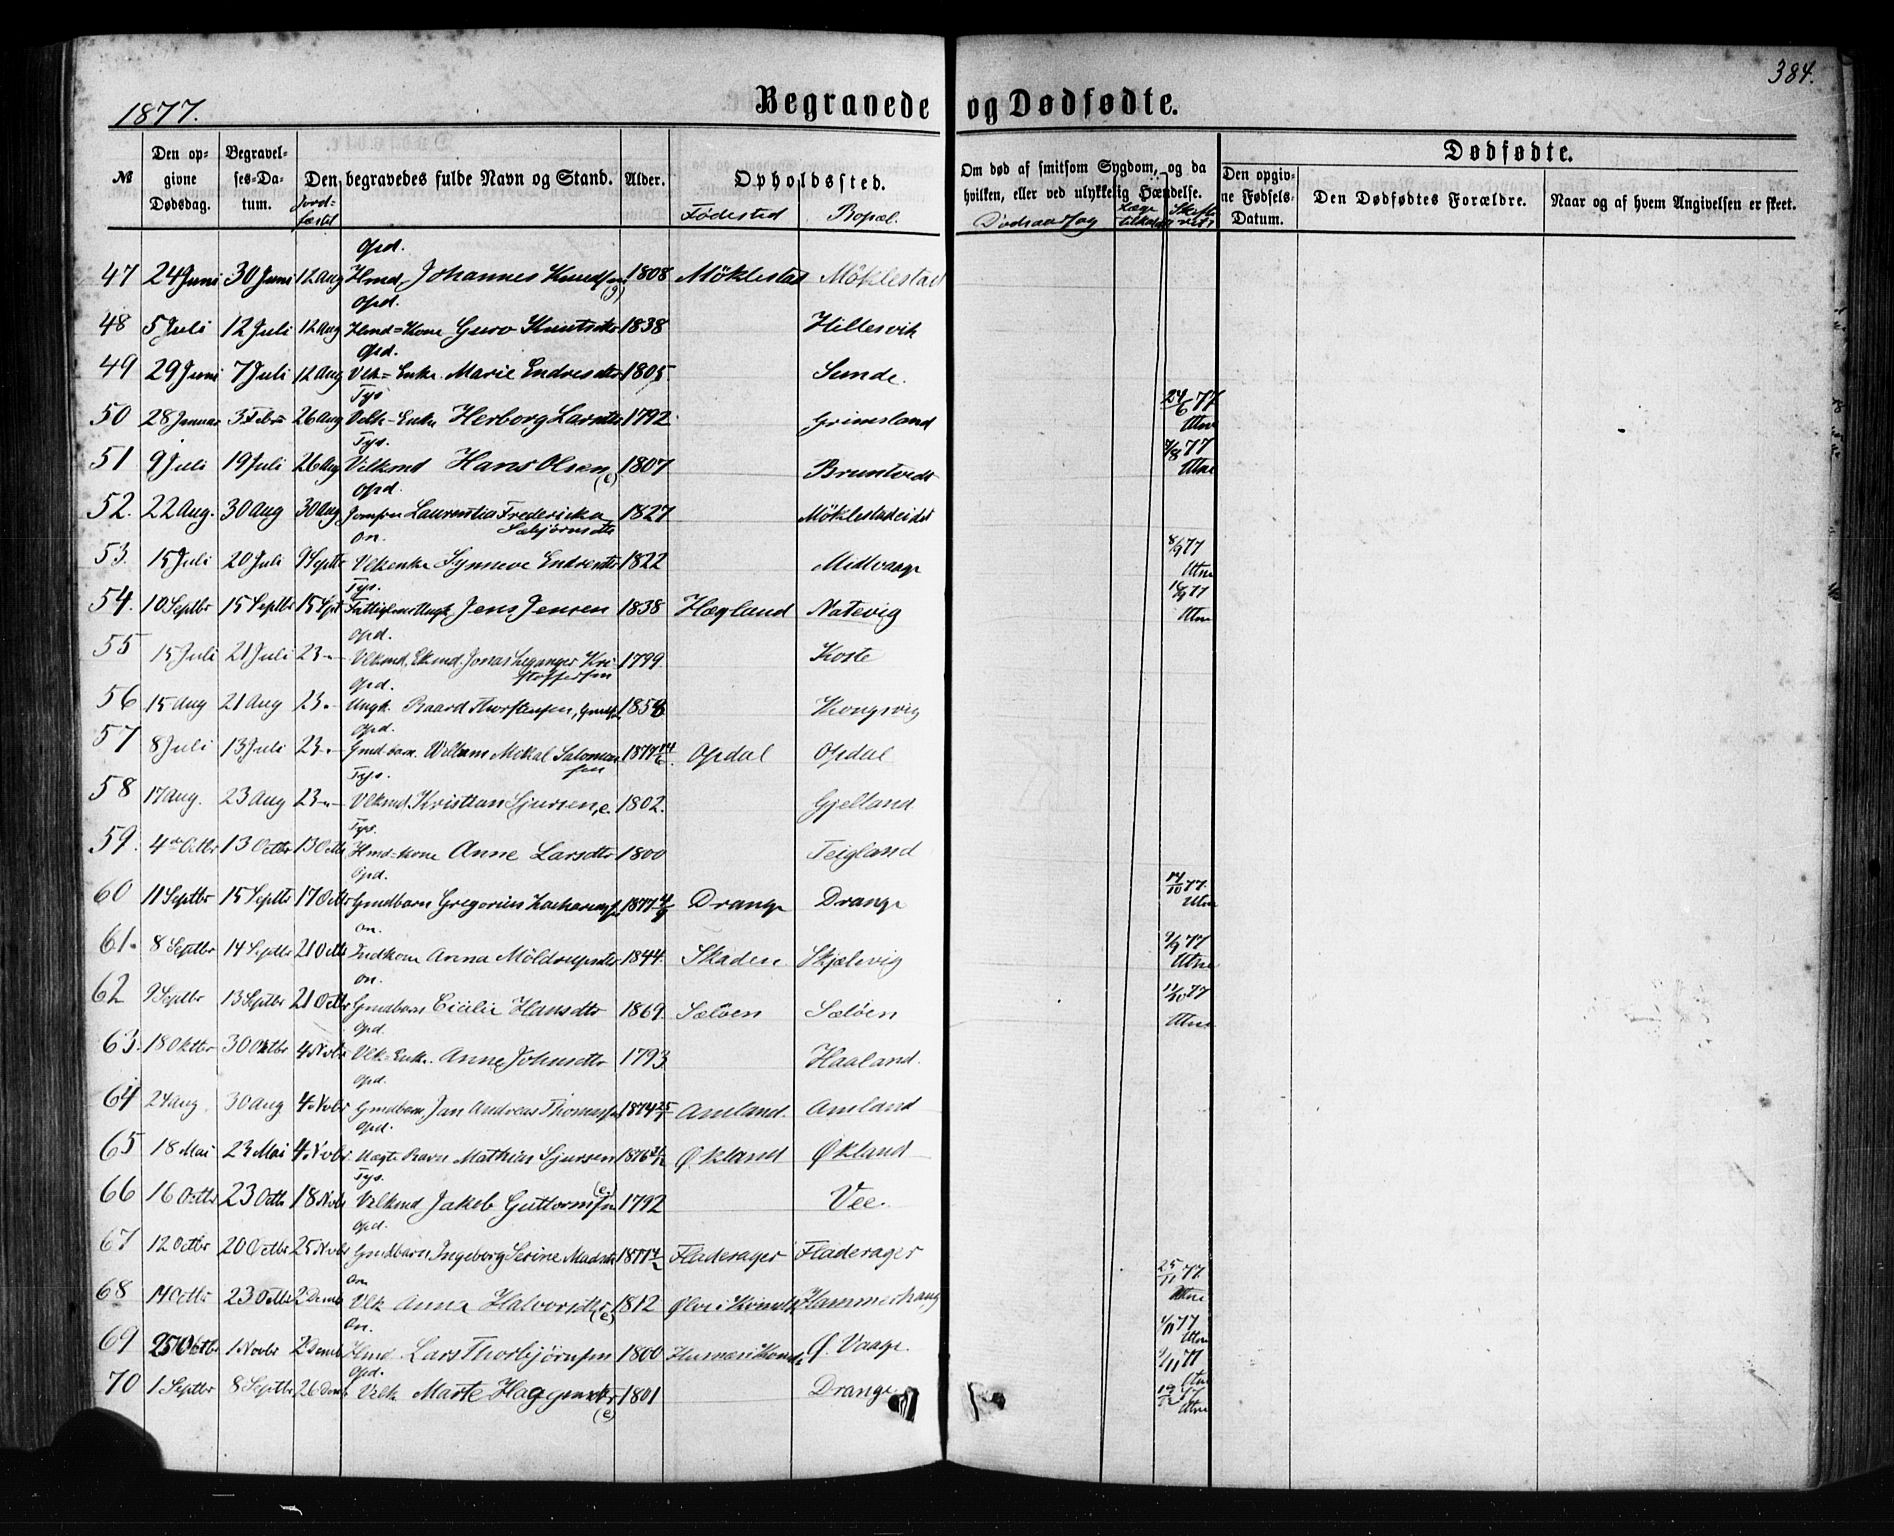 384.
1877.
Begravede og Dødfødte.
№
Den opgivne Dødsdag.
Begravelses-Datum.
Jordfæstet
Den begravedes fulde Navn og Stand.
Alder.
Opholdssted.
Fødested
Bopæl.
Om død af smitsom Sygdom, og da hvilken, eller ved ulykkelig Hændelse.
Dødsaarsag
Dødfødte.
Den opgivne Fødsels-Datum.
Den Dødfødtes Forældre.
Naar og af hvem Angivelsen er skeet.
Opd.
47 24 Juni 30 Juni 12 Aug Hmd. Johannes Knudsen 1808 Möklestad Möklestad
Opd.
48 5 Juli 12 Juli 12 Aug Hmd=Kone Guro Knutsdtr 1838 Hillesvik
Opd.
49 29 Juni 7 Juli 12 Aug Vlk=Enke Marie Endresdtr 1805 Sunde.
Tys
50 28 Januar 3 Febr 26 Aug Velk-Enke Herborg Larsdtr 1792 Grimsland 24/6 77 Utne
Tys.
51 9 Juli 19 Juli 26 Aug Velkmd Hans Olsen (e) 1807 Bruntveds 7/8 77 Utne
Opd.
52. 22 Aug. 30 Aug 30 Aug Jomfru Laurentia Fredericka Sæbjørnsdtr 1827 Möklestadeidet
On.
53. 15 Juli 20 Juli 9 Septbr Vlkenke Synneve Endresdtr 1822 Midtvaage 8/9 77 Utne
Tys.
54. 10 Septbr 15 Septbr 15 Spt Jens Jensen 1838 Hægland Natevig 77 Utne
Opd.
55 15 Juli 21 Juli 23 Vlkmd. Jonas Leganger Kristoffersen 1799 Koste
Opd.
56 15 Aug 21 Aug 23 Ungk. Baard Thorstensen, 185 Kongsvig
Opd.
57 8 Juli 13 Juli 23 Gmd barn. William Mikal Salomonsen 1877 Opdal Opdal
Tys.
58 17 Aug. 23 Aug 23 Vlkmd. Kristian Sjursen, e. 1802. Gjelland
Tys.
59. 4de Octbr 13 Octbr 13 Octbr Hmd=kone Anne Larsdtr 1800 Teigland
Opd.
60 11 Septbr 15 Septbr 17 Octbr Gmdbarn Gregorius Zachariasen 1877 4/9 Drange Drange 14/10 77. Utne
On.
61. 8 Septbr 14 Septbr 21 Octbr Indkone Anna Möldrupsdtr 1844. Skaden Skjelvig 9/9 77 Utne
On.
62 9 Septbr 13 Septbr 21 Octbr Gmdbarn Cicilie Hansdtr 1869. Sælöen Sælöen 77 Utne
Opd.
63. 18 Oktbr 30 Oktbr 4 Novbr Vlk-Enke. Anna Johnsdtr 1793 Haaland.
Opd.
64 24 Aug. 30 Aug 4 Novbr Gmdbarn, Jan Andreas Thomassen 1874 Amland. Amland
Opd.
65 18 Mai 23 Mai 4 Novbr. Uægte Barn Mathias Sjursen 1876 Økland Økland
Tys.
66 16 Octbr 23 Octbr 18 Novbr Velkmd Jakob Guttormsen (e) 1792 Vee.
Opd.
67 12 Octbr 20 Octbr 25 Novbr Gmdbarn Ingeborg Serine Madsdtr 1877 Fladerager Fladerager
On
68 14 Octbr 23 Octbr 2 Decmb Vlk Anna Halvorsdtr (e) 1812 Ølve i Kvindh Hammerhaug 25/11 77. Utne
On.
69 25 Octbr 1 Novbr 2 Decmb Hmd Lars Thorbjörnsen 1800 Ø. Vaage. 77 Utne
Opd.
70 1 Septbr 8 Septbr 26 Decb Velk Marte Haggensdtr (e) 1801 Drange Utne